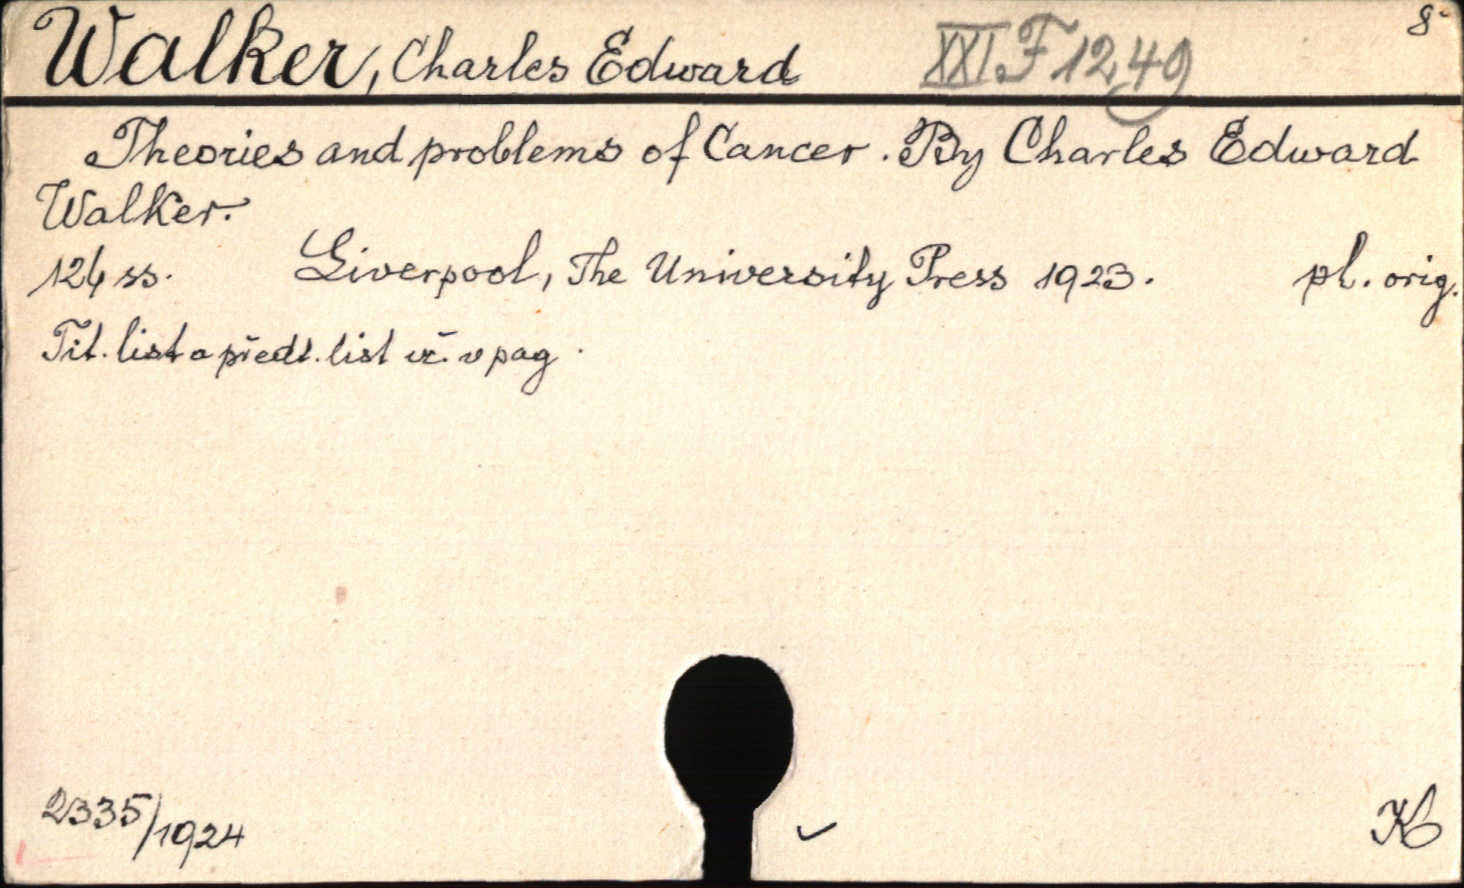 Walker, Charles Edward XXI F 1249 8°
Theories and problems of Cancer. By Charles Edward
Walker.
124 ss. Liverpool, The University Press 1923. pl. orig.
Tit. list a předt. list vč. v pag.
2335/1924